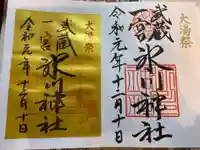 大湯祭
武蔵
一宮
氷川神社
令和元年十二月十日
大湯祭
武蔵
一宮
氷川神社
令和元年十二月十日